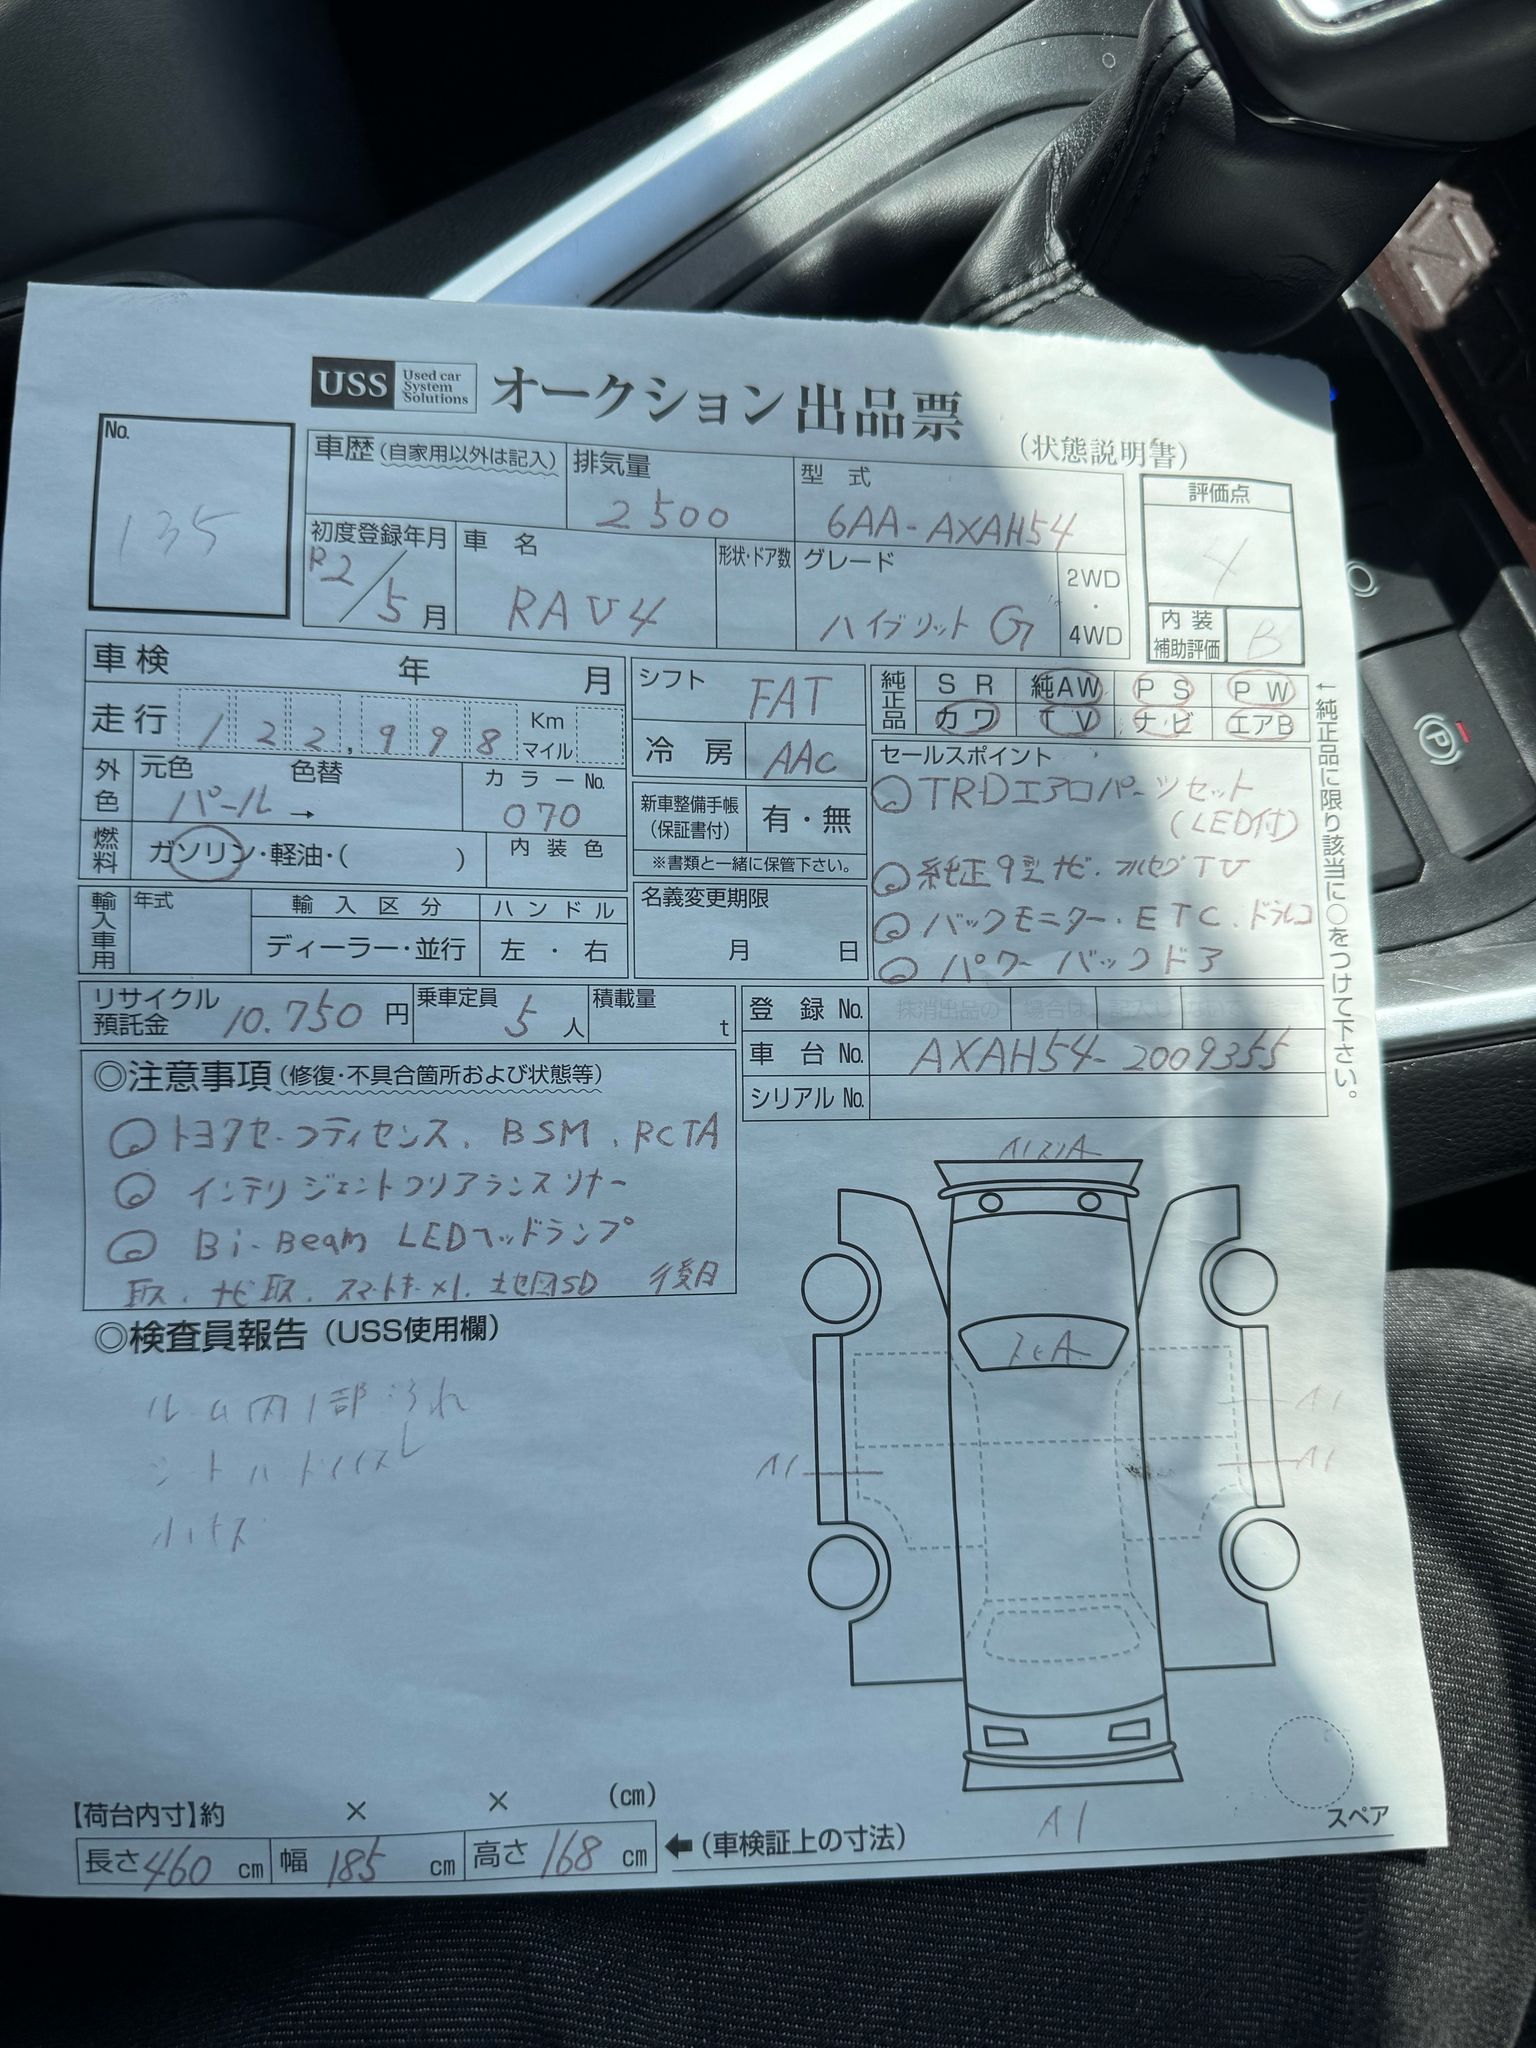 USS Used car System Solutions オークション出品票
(状態説明書)
No.
135
車歴(自家用以外は記入)
排気量
2500
型式
6AA-AXAH54
評価点
4
初度登録年月
R2/5月
車名
RAV4
形状・ドア数
グレード
ハイブリット G
2WD・4WD
内装補助評価
B
車検 年 月
走行 122,998 Km マイル
シフト
FAT
冷房
AAC
純正品
SR 純AW PS PW
カワ TV ナビ エアB
↑純正品に限り該当に○をつけて下さい。
外色
元色 色替
パール →
カラーNo.
070
燃料
ガソリン・軽油・( )
内装色
新車整備手帳(保証書付)
有・無
※書類と一緒に保管下さい。
セールスポイント
TRDエアロパーツセット
(LED付)
純正9型ナビ・フルセグTV
バックモニター・ETC・ドラレコ
パワーバックドア
輸入車用
年式
輸入区分
ディーラー・並行
ハンドル
左・右
名義変更期限
月 日
リサイクル預託金 10.750 円
乗車定員 5 人
積載量 t
登録No.
車台No. AXAH54-2009355
シリアルNo.
◎注意事項(修復・不具合箇所および状態等)
トヨタセーフティセンス、BSM、RCTA
インテリジェントクリアランスソナー
Bi-Beam LEDヘッドランプ
取、ナビ取、スマートキー×1、地図SD 後日
◎検査員報告(USS使用欄)
ルーム内1部汚れ
A1
A1
A1
A1
スペア
【荷台内寸】約 × × (cm)
長さ460cm 幅185cm 高さ168cm ←(車検証上の寸法)